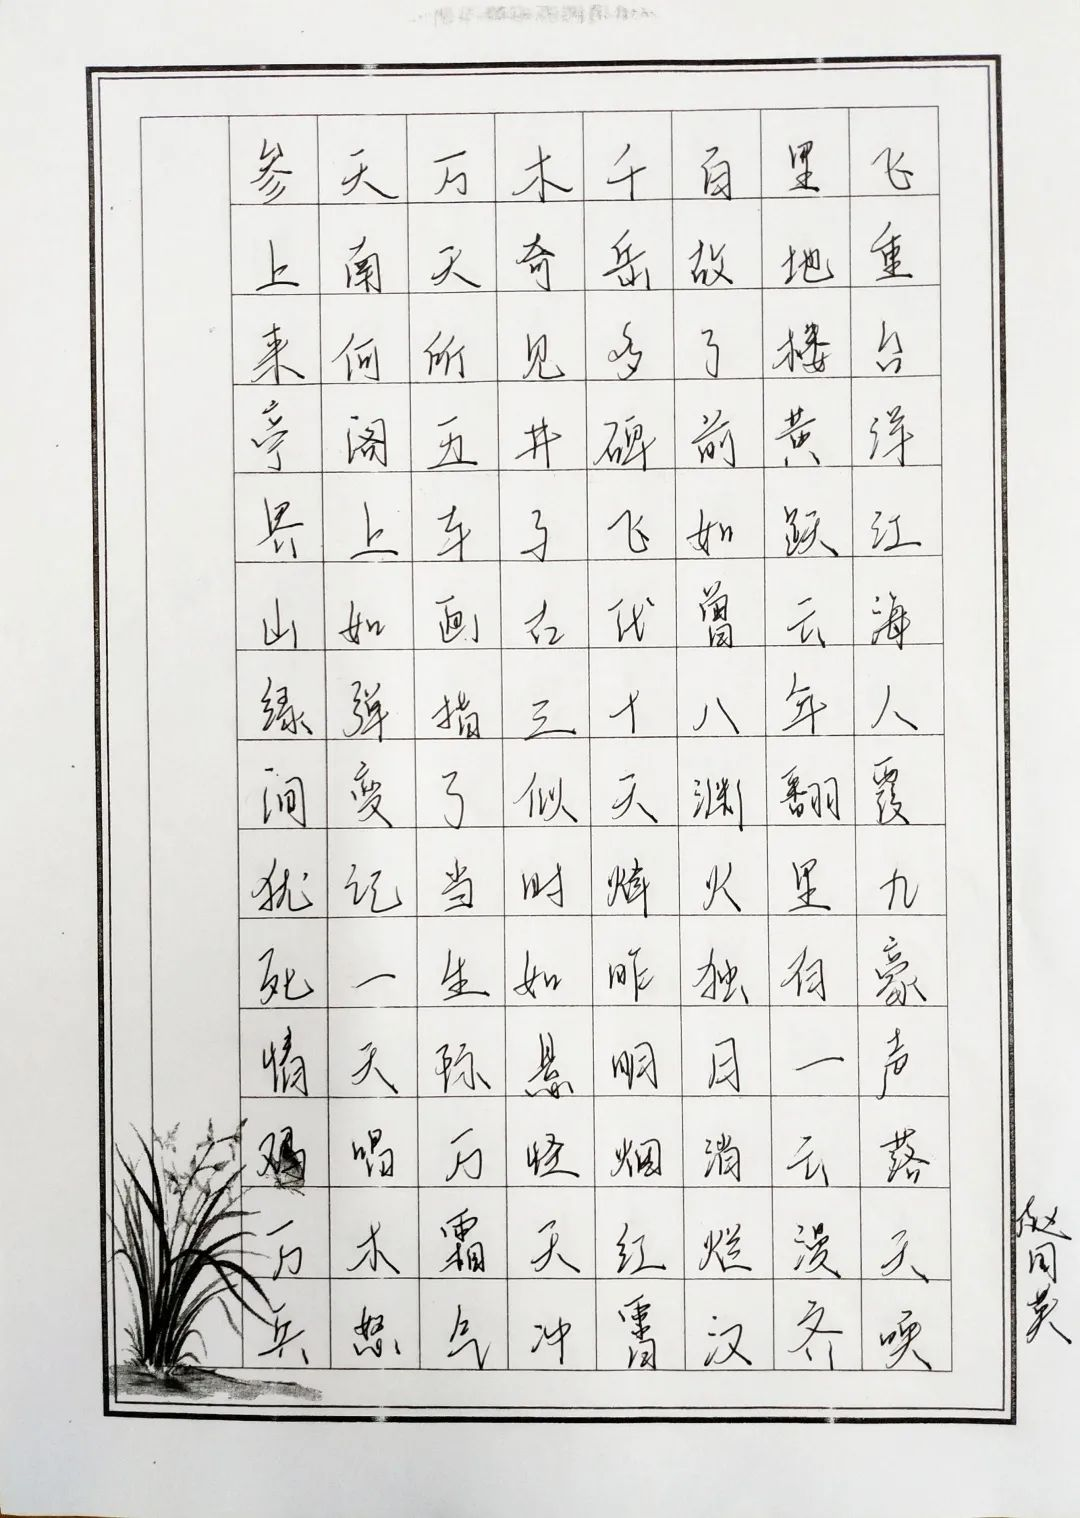 参天万木千百里飞
上南天奇岳故地重
来何所见多了楼台
亭阁五井碑前黄洋
界上车子飞如跃江
山如画古代曾云海
绿弹指三十八年人
间变了似天渊翻覆
犹记当时烽火里九
死一生如昨独有豪
情天际悬明月一声
鸡唱万怪烟消云落
万木霜天红烂漫天
兵怒气冲霄汉齐唤
赵同英